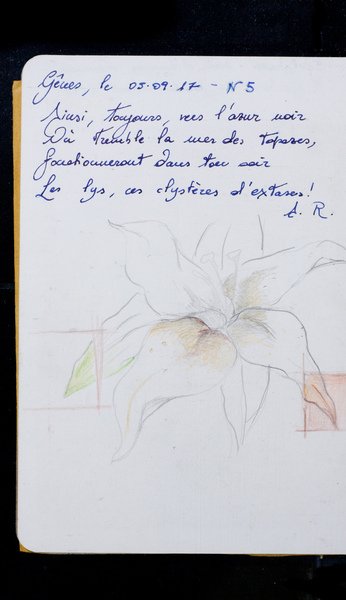 Gênes, le 05.09.17 - N 5
Ainsi, toujours, vers l'azur noir
Où tremble la mer des topazes,
fonctionneront dans ton soir
Les lys, ces clystères d'extases!
A. R.